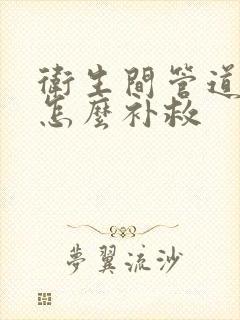 衛生間管道
怎麼补救
夢翼流沙